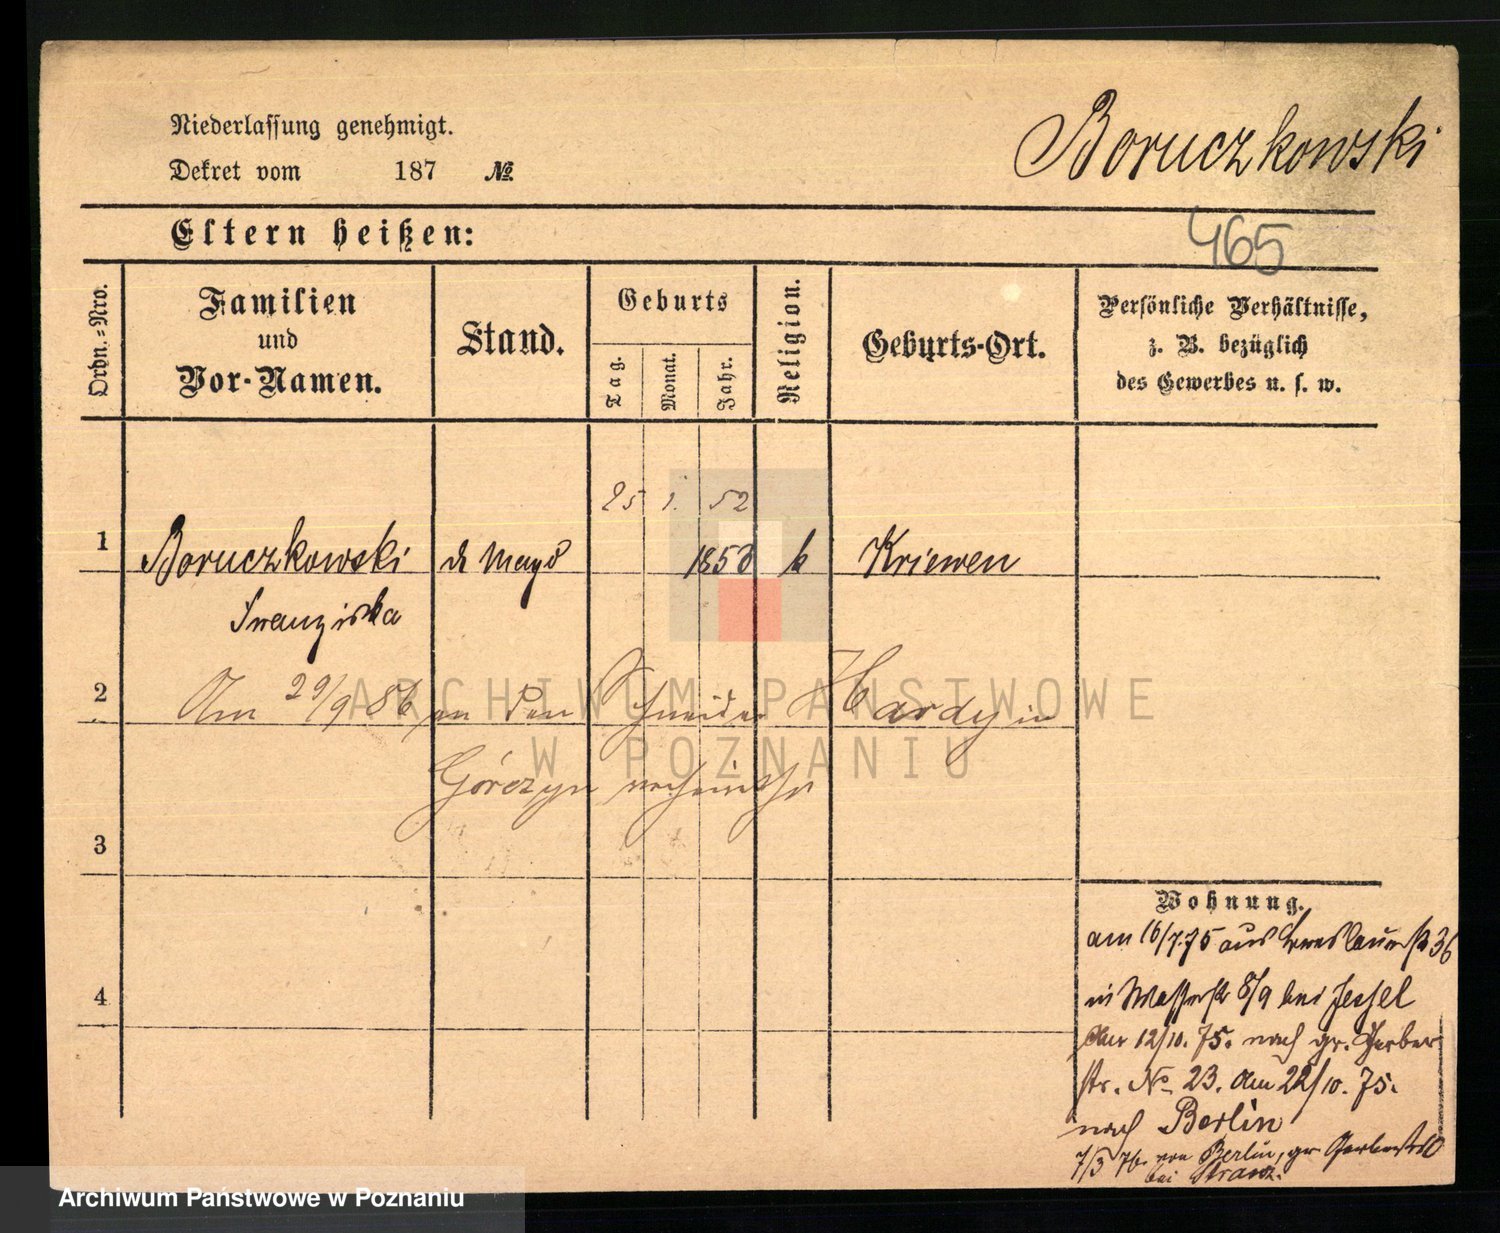 Niederlassung genehmigt.
Dekret vom 187 №
Boruczkowski
Eltern heißen:
465
Ordn.-Nro.
Familien
und
Vor-Namen.
Stand.
Geburts
Tag.
Monat.
Jahr.
Religion.
Geburts-Ort.
Persönliche Verhältnisse,
z. B. bezüglich
des Gewerbes u. s. w.
25 1. 52
1 Boruczkowski d Magd 1853 k Kriewen
Franziska
2 Am 29/9 86 an den Schneider Hardy in
Górczyn verheirathet
3
4
Wohnung.
am 16/7.75 aus Breslauerstr 36
in Wasserstr 8/9 bei Jeschel
Am 12/10. 75. nach gr. Gerber
str. No 23. Am 22/10. 75.
nach Berlin
7/3 76 von Berlin, gr Gerberstr
bei
ARCHIWUM PAŃSTWOWE
W POZNANIU
Archiwum Państwowe w Poznaniu